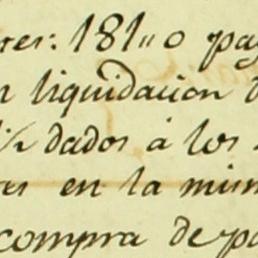 res: 181"0 pa
n liquidacion d
½ dados á los
es en la mism
compra de pa